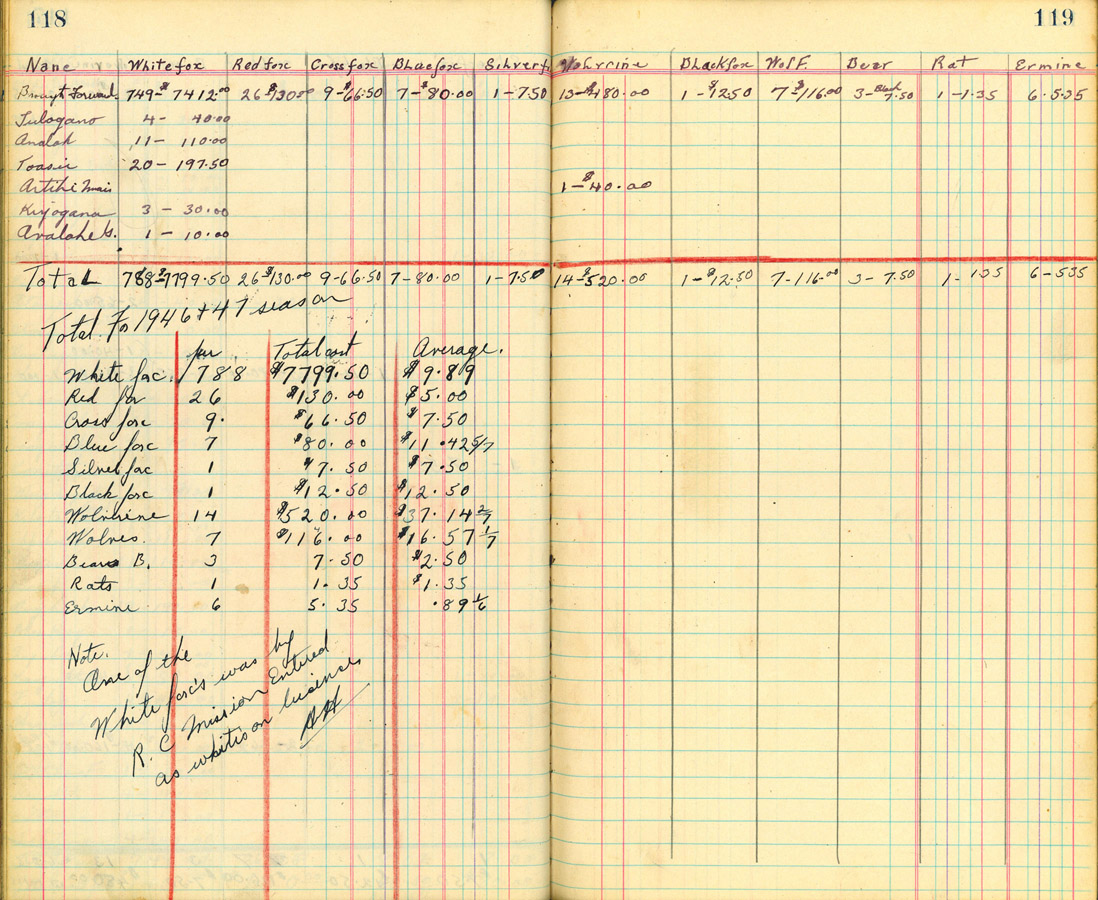 118
119
Name White fox Red fox Cross fox Blue fox Silverf Wolvrine Blackfox Wolf. Bear Rat Ermine
Brought Forward. 749-$7412.00 26 $130.00 9-$66.50 7-$80.00 1-7.50 13-$480.00 1-$12.50 7 $116.00 3-Black 7.50 1-1.35 6.5.35
Tulogano 4- 40.00
Analok 11- 110.00
Toasie 20- 197.50
1-$40.00
Kiyogana 3 - 30.00
1 - 10.00
Total 788-$7799.50 26 $130.00 9-66.50 7-80.00 1-7.50 14-$520.00 1-$12.50 7-116.00 3- 7.50 1- 135 6-535
Total. For 1946 + 47 season
fur Total cost Average.
White fox. 788 $7799.50 $9.89
Red fox 26 $130.00 $5.00
Cross fox 9. $66.50 $7.50
Blue fox 7 $80.00 $11.42 5/7
Silver fox 1 $7.50 $7.50
Black fox 1 $12.50 $12.50
Wolverine 14 $520.00 $37.14 2/7
Wolves. 7 $116.00 $16.57 1/7
Bears B. 3 7.50 $2.50
Rats 1 1.35 $1.35
Ermine 6 5.35 .89 1/6
Note.
One of the
White fox's was by
R. C Mission Entered
as whitison business